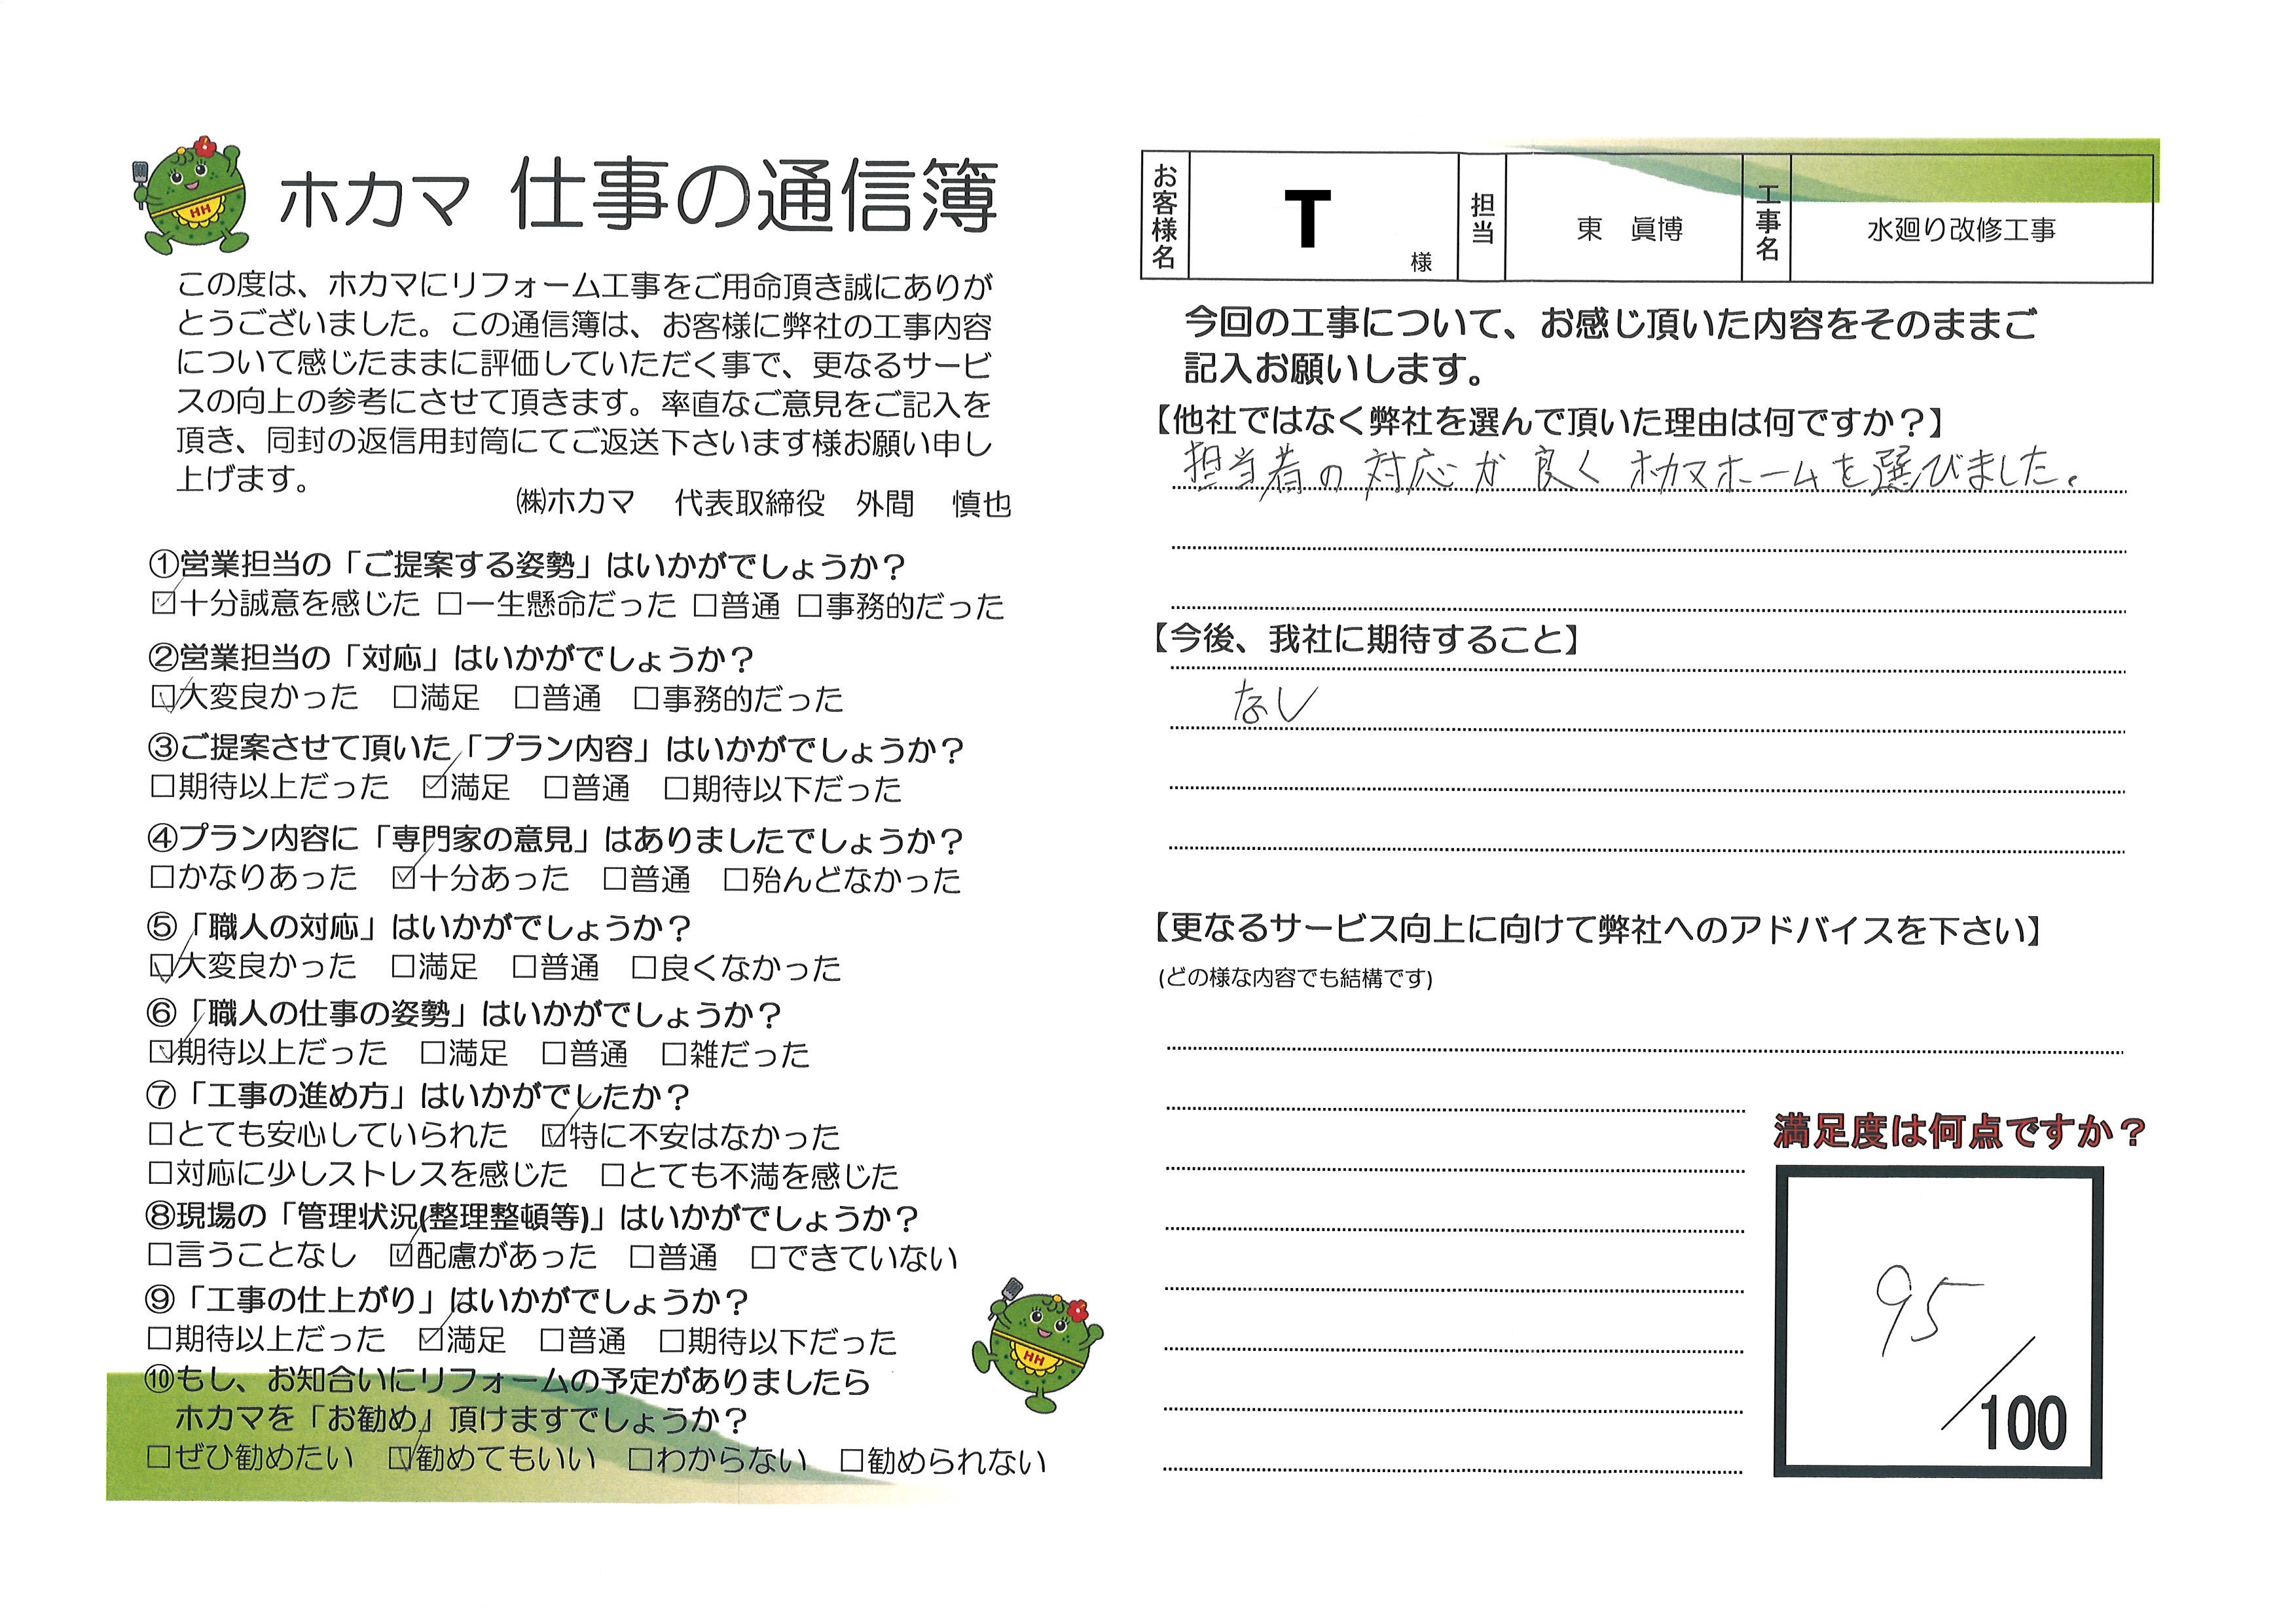 ホカマ 仕事の通信簿
この度は、ホカマにリフォーム工事をご用命頂き誠にありが
とうございました。この通信簿は、お客様に弊社の工事内容
について感じたままに評価していただく事で、更なるサービ
スの向上の参考にさせて頂きます。率直なご意見をご記入を
頂き、同封の返信用封筒にてご返送下さいます様お願い申し
上げます。
㈱ホカマ 代表取締役 外間 慎也
①営業担当の「ご提案する姿勢」はいかがでしょうか？
☑十分誠意を感じた □一生懸命だった □普通 □事務的だった
②営業担当の「対応」はいかがでしょうか？
☑大変良かった □満足 □普通 □事務的だった
③ご提案させて頂いた「プラン内容」はいかがでしょうか？
□期待以上だった ☑満足 □普通 □期待以下だった
④プラン内容に「専門家の意見」はありましたでしょうか？
□かなりあった ☑十分あった □普通 □殆んどなかった
⑤「職人の対応」はいかがでしょうか？
☑大変良かった □満足 □普通 □良くなかった
⑥「職人の仕事の姿勢」はいかがでしょうか？
☑期待以上だった □満足 □普通 □雑だった
⑦「工事の進め方」はいかがでしたか？
□とても安心していられた ☑特に不安はなかった
□対応に少しストレスを感じた □とても不満を感じた
⑧現場の「管理状況(整理整頓等)」はいかがでしょうか？
□言うことなし ☑配慮があった □普通 □できていない
⑨「工事の仕上がり」はいかがでしょうか？
□期待以上だった ☑満足 □普通 □期待以下だった
⑩もし、お知合いにリフォームの予定がありましたら
ホカマを「お勧め」頂けますでしょうか？
□ぜひ勧めたい ☑勧めてもいい □わからない □勧められない
HH
HH
お客様名 T 様 担当 東 眞博 工事名 水廻り改修工事
今回の工事について、お感じ頂いた内容をそのままご
記入お願いします。
【他社ではなく弊社を選んで頂いた理由は何ですか？】
担当者の対応が良くホカマホームを選びました。
【今後、我社に期待すること】
なし
【更なるサービス向上に向けて弊社へのアドバイスを下さい】
(どの様な内容でも結構です)
満足度は何点ですか？
95
/100